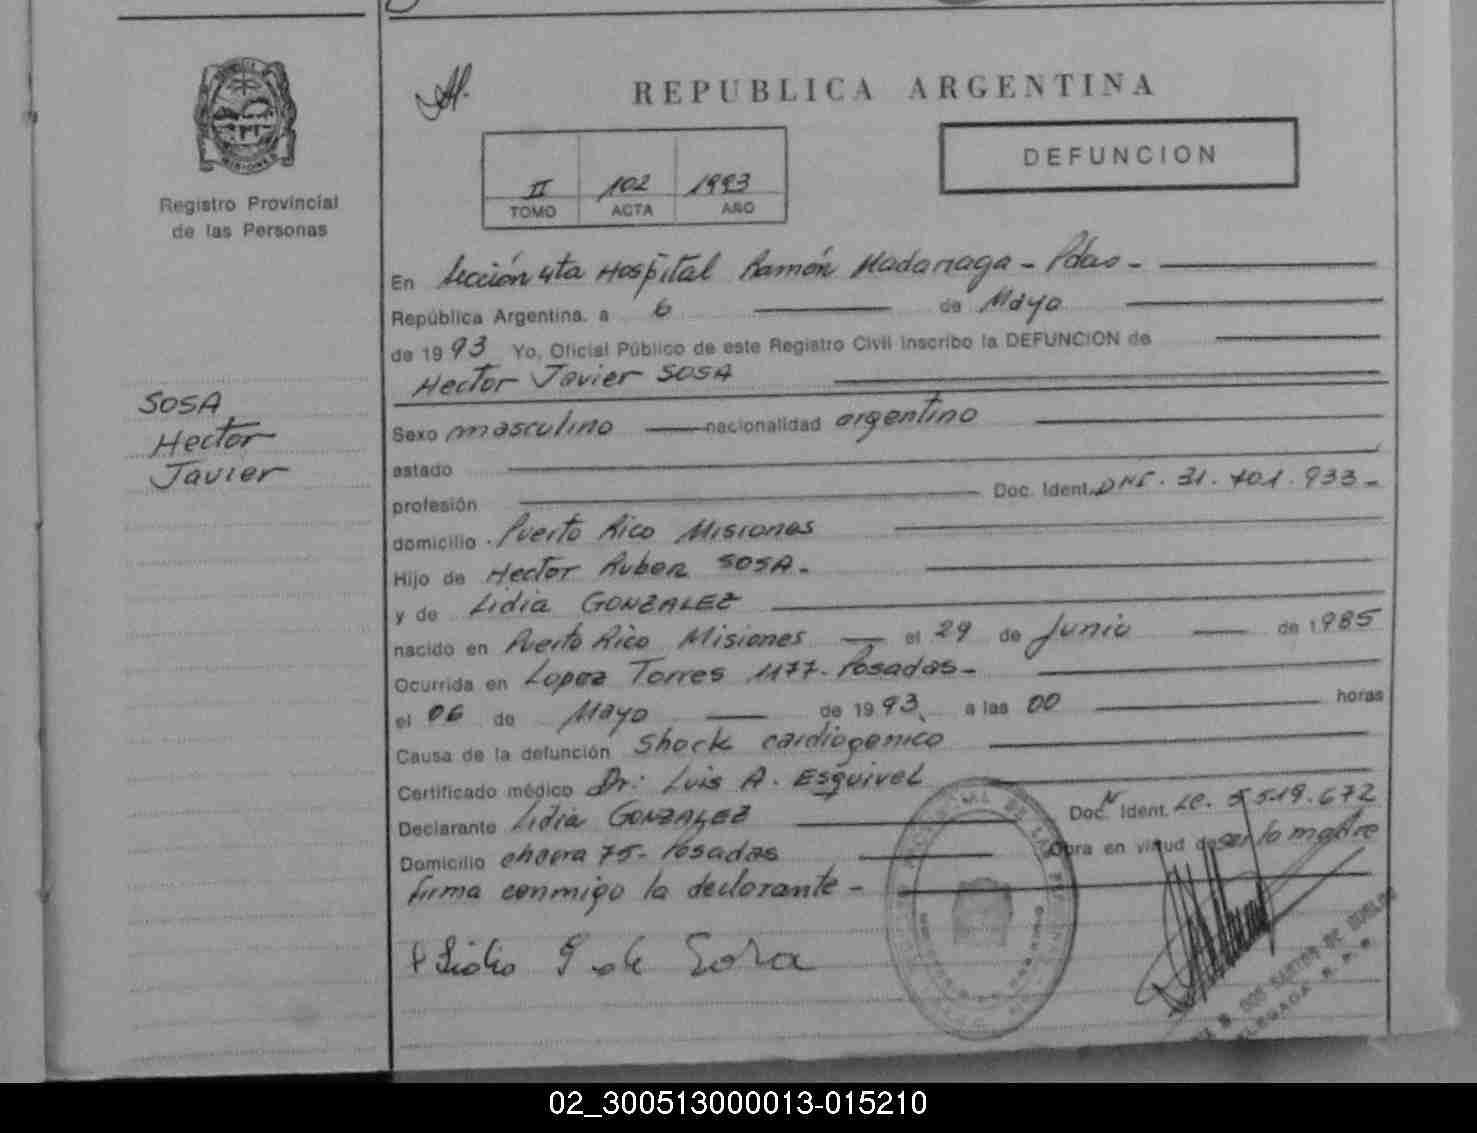 REPUBLICA ARGENTINA
DEFUNCION
II 102 1993
TOMO ACTA AÑO
MISIONES
Registro Provincial
de las Personas
SOSA
Hector
Javier
En Sección 4ta Hospital Ramón Madariaga - Pdas -
República Argentina, a 6 de Mayo
de 1993 Yo, Oficial Público de este Registro Civil inscribo la DEFUNCION de
Hector Javier SOSA
Sexo masculino nacionalidad argentino
estado
profesión Doc. Ident. DNI. 31.701.933-
domicilio Puerto Rico Misiones
Hijo de Hector Ruben SOSA.
y de Lidia GONZALEZ
nacido en Puerto Rico Misiones el 29 de Junio de 1985
Ocurrida en Lopez Torres 1177- Posadas-
el 06 de Mayo de 1993, a las 00 horas
Causa de la defunción Shock cardiogenico
Certificado médico Dr: Luis A. Esquivel
Declarante Lidia GONZALEZ Doc. Ident. LC. 5.519.672
Domicilio chacra 75- Posadas Obra en virtud de ser la madre
firma conmigo la declarante -
Lidia G de Sosa
DOS SANTOS DE
DELEGADA R.P.P.
02_300513000013-015210